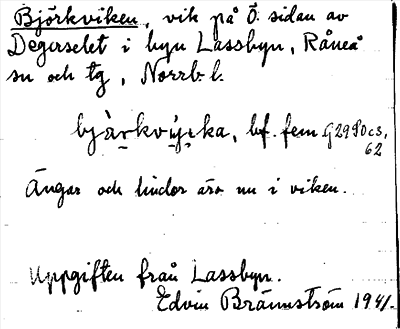 Björkviken, vik på Ö. sidan av
Degerselet i byn Lassbyn, Råneå
sn och tg, Norrb. l.
bjärkvika, bf. fem.
Ängar och lindor äro nu i viken.
Uppgiften från Lassbyn.
Edvin Brännström 1941.